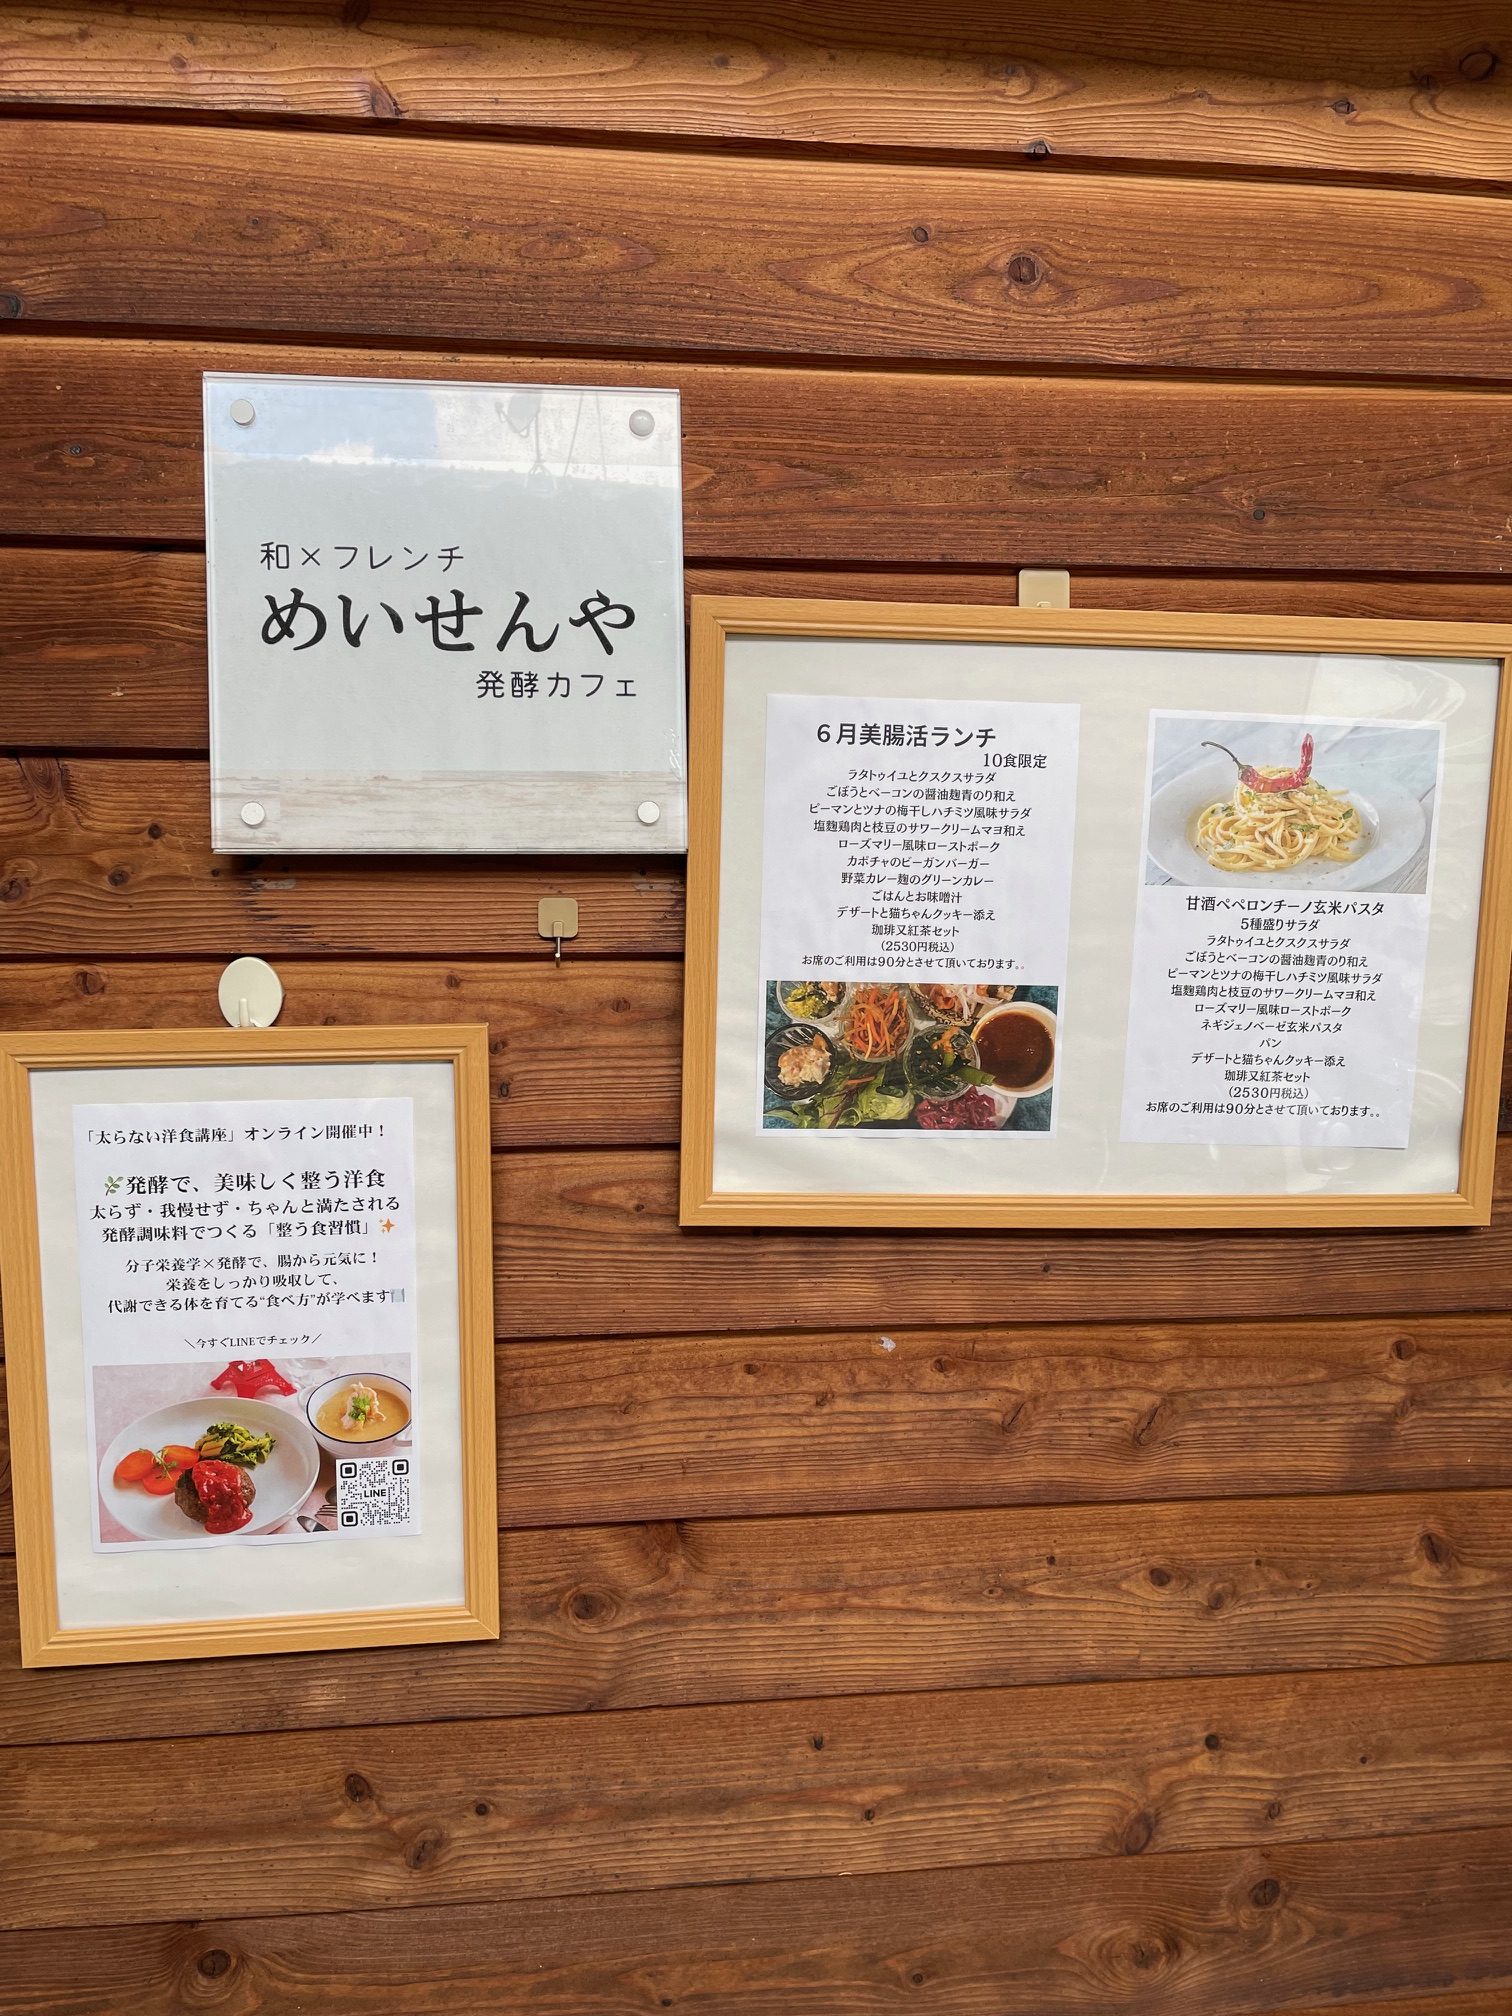 和×フレンチ
めいせんや
発酵カフェ
６月美腸活ランチ
10食限定
ラタトゥイユとクスクスサラダ
ごぼうとベーコンの醤油麹青のり和え
ピーマンとツナの梅干しハチミツ風味サラダ
塩麹鶏肉と枝豆のサワークリームマヨ和え
ローズマリー風味ローストポーク
カボチャのビーガンバーガー
野菜カレー麹のグリーンカレー
ごはんとお味噌汁
デザートと猫ちゃんクッキー添え
珈琲又紅茶セット
（2530円税込）
お席のご利用は90分とさせて頂いております。。
甘酒ペペロンチーノ玄米パスタ
5種盛りサラダ
ラタトゥイユとクスクスサラダ
ごぼうとベーコンの醤油麹青のり和え
ピーマンとツナの梅干しハチミツ風味サラダ
塩麹鶏肉と枝豆のサワークリームマヨ和え
ローズマリー風味ローストポーク
ネギジェノベーゼ玄米パスタ
パン
デザートと猫ちゃんクッキー添え
珈琲又紅茶セット
（2530円税込）
お席のご利用は90分とさせて頂いております。。
「太らない洋食講座」オンライン開催中！
🌿発酵で、美味しく整う洋食
太らず・我慢せず・ちゃんと満たされる
発酵調味料でつくる「整う食習慣」✨
分子栄養学×発酵で、腸から元気に！
栄養をしっかり吸収して、
代謝できる体を育てる“食べ方”が学べます🍽️
＼今すぐLINEでチェック／
LINE